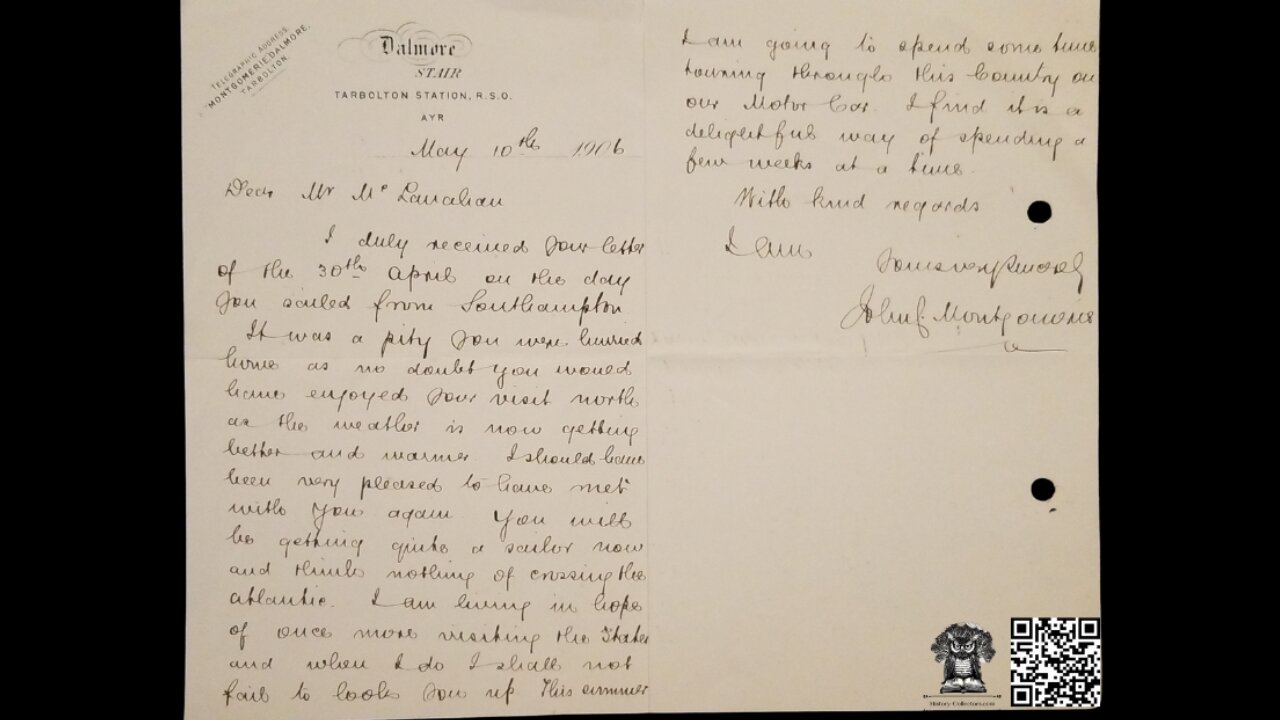 TELEGRAPHIC ADDRESS.
"MONTGOMERIE, DALMORE.
TARBOLTON."
Dalmore
STAIR
TARBOLTON STATION, R.S.O.
AYR
May 10th 1906
Dear Mr McLanahan
I duly received your letter
of the 30th April on the day
you sailed from Southampton
It was a pity you were hurried
home as no doubt you would
have enjoyed your visit north
as the weather is now getting
better and warmer. I should have
been very pleased to have met
with you again. You will
be getting quite a sailor now
and think nothing of crossing the
Atlantic. I am living in hope
of once more visiting the States
and when I do I shall not
fail to look you up This summer
I am going to spend some time
touring through this Country on
our Motor Car. I find it is a
delightful way of spending a
few weeks at a time.
With kind regards
I am
Yours very sincerely
John C Montgomerie
History-Collectors.com